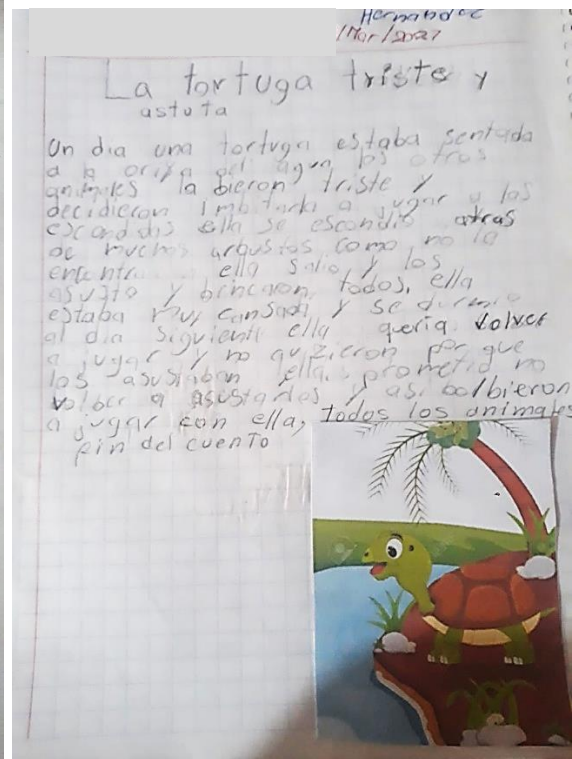 Hernandez
/Mar/2021
La tortuga triste y
astuta
Un dia una tortuga estaba sentada
a la oriya del agua, los otros
animales la bieron triste y
decidieron imbitarla a jugar a las
escondidis ella se escondio atras
de muchos arbustos como no la
encontr ella salio y los
asusto y brincaron todos, ella
estaba muy cansada y se durmio
al dia siguiente ella queria volver
a jugar y no quizieron por que
los asustaban ella prometio no
volber a asustarlos y asi bolbieron
a jugar con ella, todos los animales
fin del cuento